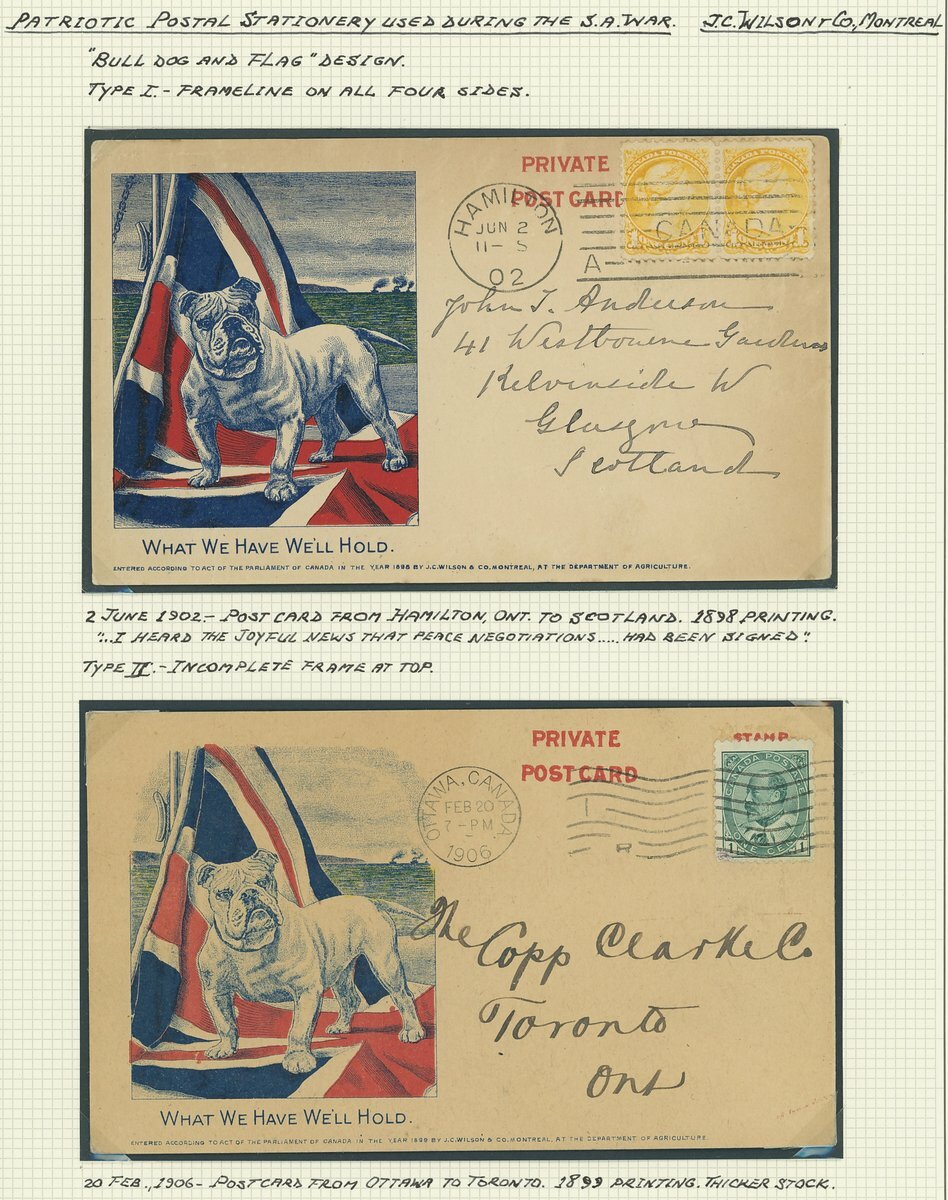 PATRIOTIC POSTAL STATIONERY USED DURING THE S.A. WAR. J.C. WILSON & CO., MONTREAL
"BULL DOG AND FLAG" DESIGN.
TYPE I. - FRAMELINE ON ALL FOUR SIDES.
PRIVATE
POST CARD
CANADA POSTAGE
CANADA POSTAGE
HAMILTON
JUN 2
11- S
02
CANADA
A
John T. Anderson
41 Westbourne Gardens
Kelvinside W
Glasgow
Scotland
WHAT WE HAVE WE'LL HOLD.
ENTERED ACCORDING TO ACT OF THE PARLIAMENT OF CANADA IN THE YEAR 1898 BY J.C. WILSON & CO. MONTREAL, AT THE DEPARTMENT OF AGRICULTURE.
2 JUNE 1902 - POST CARD FROM HAMILTON, ONT. TO SCOTLAND. 1898 PRINTING.
"...I HEARD THE JOYFUL NEWS THAT PEACE NEGOTIATIONS..... HAD BEEN SIGNED".
TYPE II. - INCOMPLETE FRAME AT TOP.
PRIVATE
POST CARD
STAMP
CANADA POSTAGE
1 ONE CENT 1
OTTAWA, CANADA.
FEB 20
7-PM
1906
The Copp Clarke Co
Toronto
Ont
WHAT WE HAVE WE'LL HOLD.
ENTERED ACCORDING TO ACT OF THE PARLIAMENT OF CANADA IN THE YEAR 1899 BY J.C. WILSON & CO. MONTREAL, AT THE DEPARTMENT OF AGRICULTURE.
20 FEB., 1906 - POSTCARD FROM OTTAWA TO TORONTO. 1899 PRINTING. THICKER STOCK.